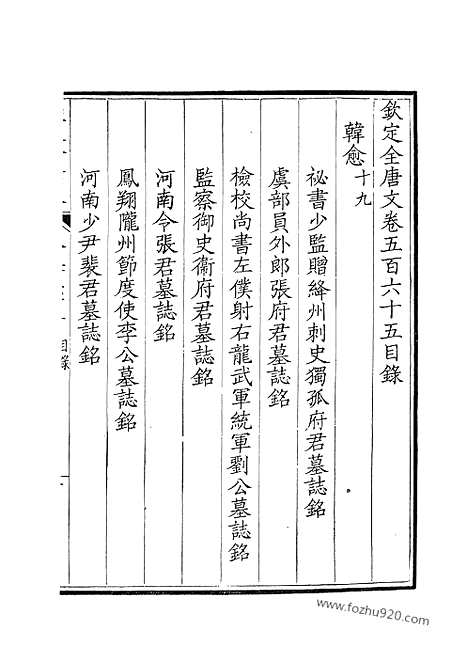 欽定全唐文卷五百六十五目錄
韓愈十九
祕書少監贈絳州刺史獨孤府君墓誌銘
虞部員外郎張府君墓誌銘
檢校尚書左僕射右龍武軍統軍劉公墓誌銘
監察御史衞府君墓誌銘
河南令張君墓誌銘
鳳翔隴州節度使李公墓誌銘
河南少尹裴君墓誌銘
目錄
www.fozhu920.com